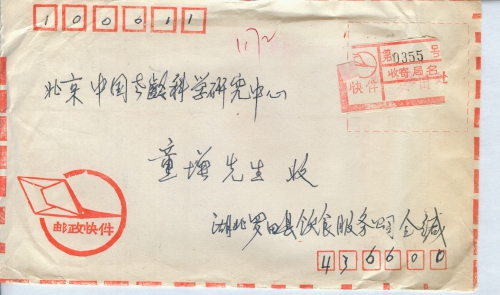 100011
11/2
第0355号
收寄局名
快件
北京中国老龄科学研究中心
童增先生收
邮政快件
湖北罗田县饮食服务公司金缄
436600